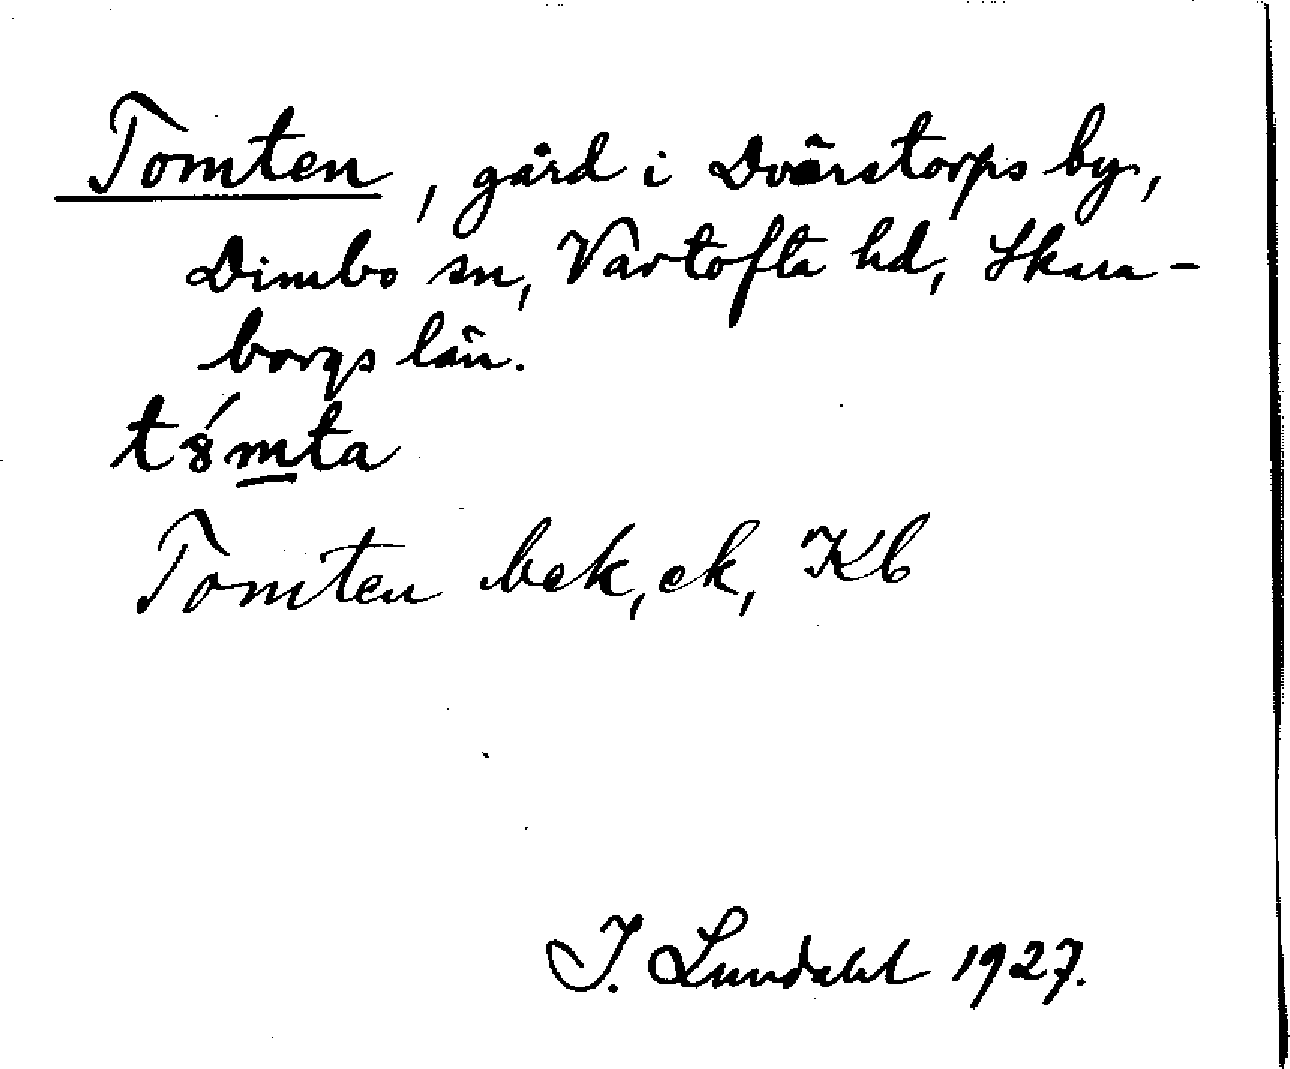 Tomten, gård i Dvärstorps by,
Dimbo sn, Vartofta hd, Skara-
borgs län.
t8́mta
Tomten bek, ek, Kb
I. Lundahl 1927.